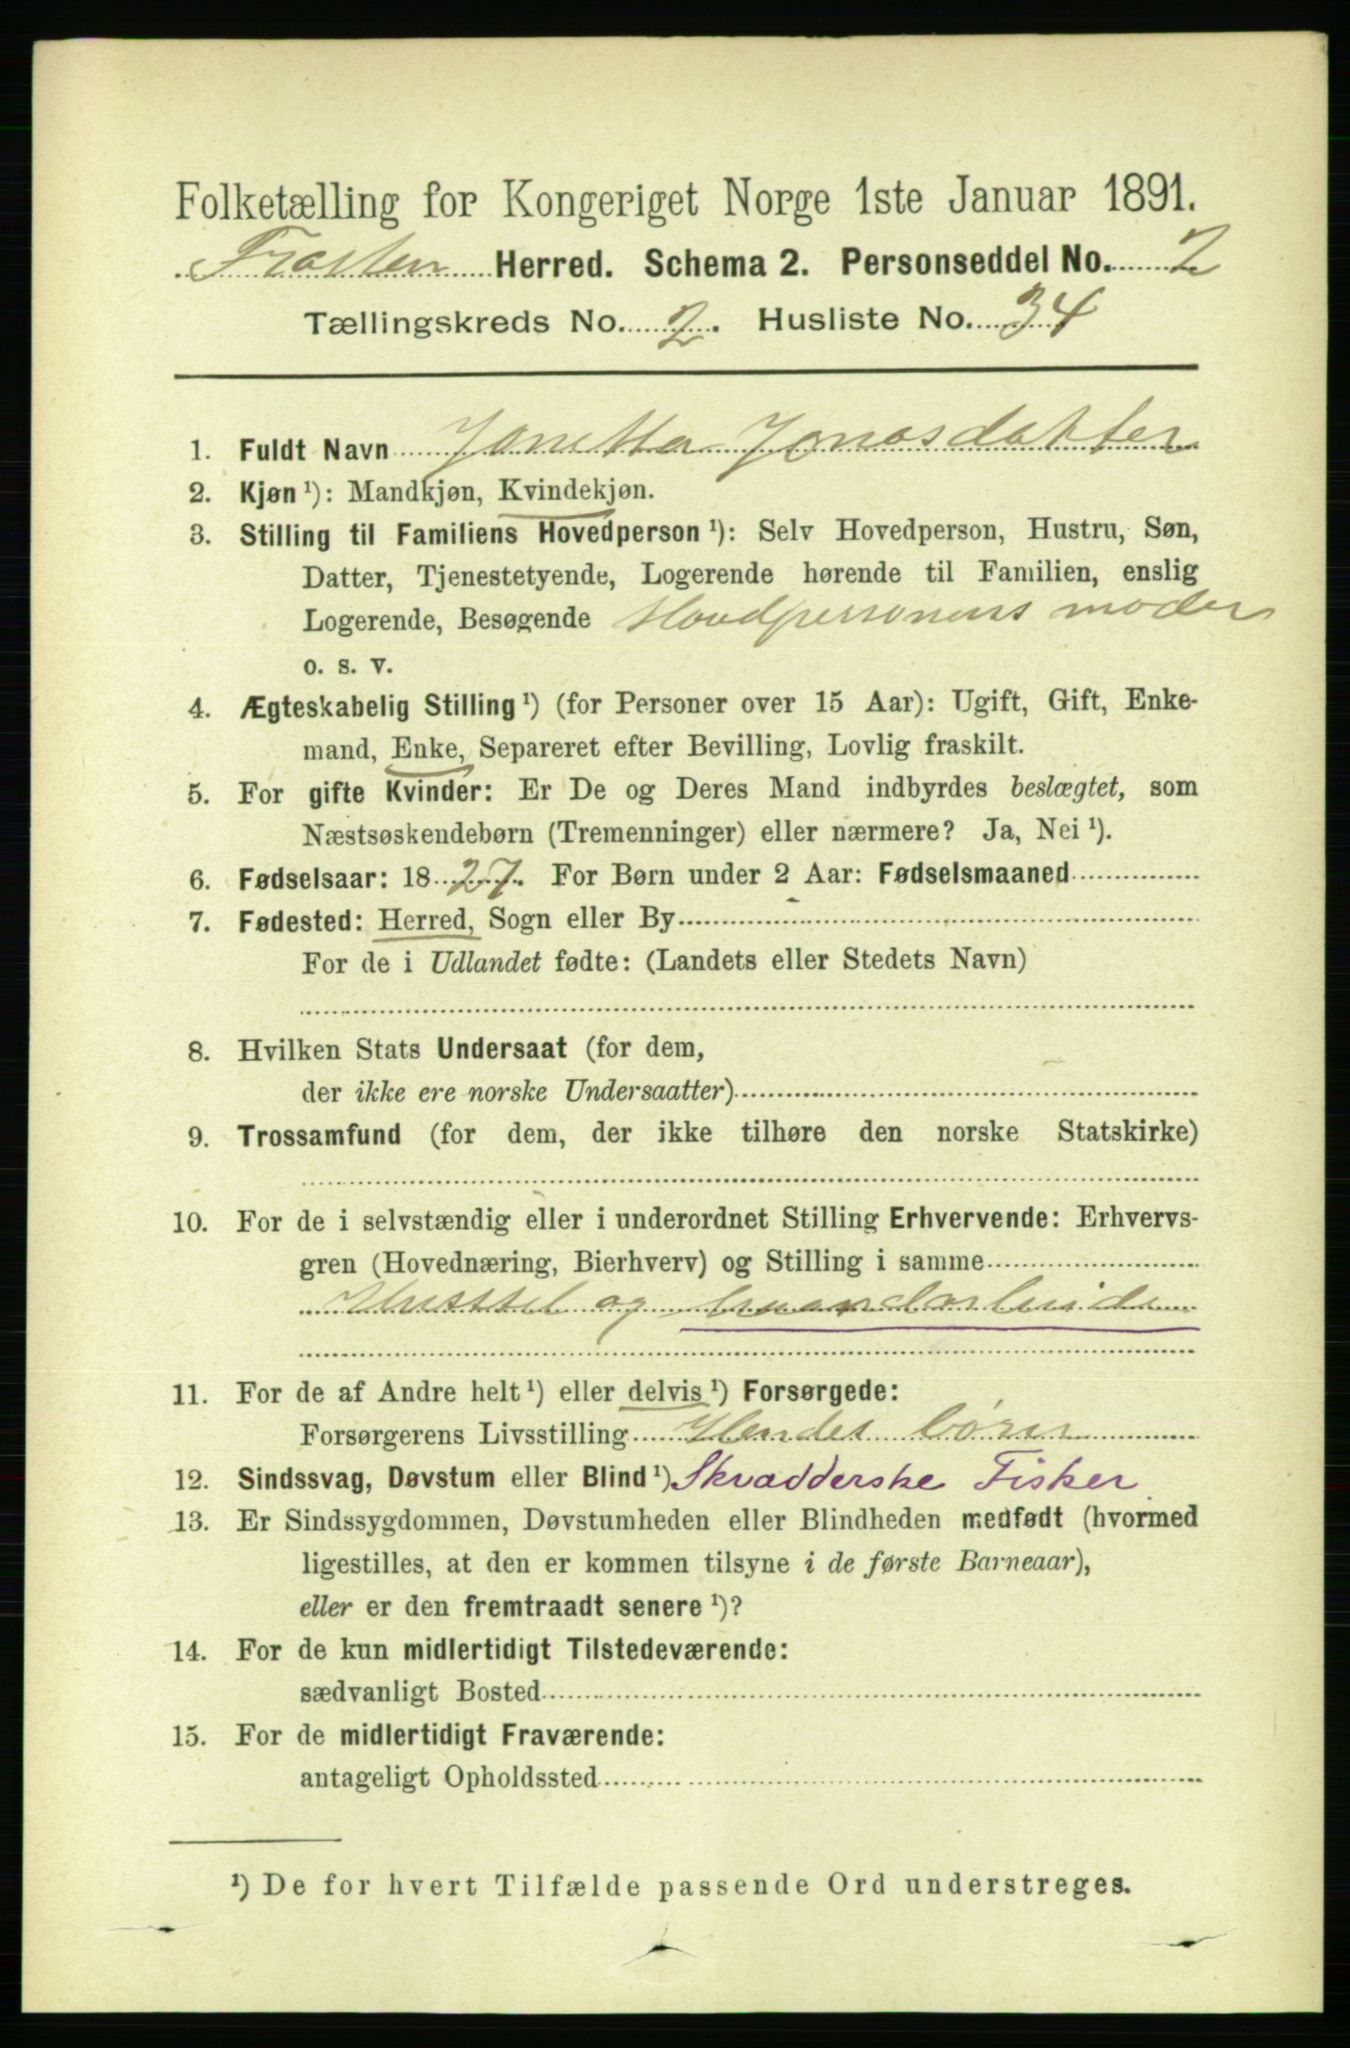 Folketælling for Kongeriget Norge 1ste Januar 1891.
Frosten Herred. Schema 2. Personseddel No. 2
Tællingskreds No. 2. Husliste No. 34
1. Fuldt Navn Jonetta Jonasdatter
2. Kjøn ¹): Mandkjøn, Kvindekjøn.
3. Stilling til Familiens Hovedperson ¹): Selv Hovedperson, Hustru, Søn,
Datter, Tjenestetyende, Logerende hørende til Familien, enslig
Logerende, Besøgende Hovdpersonens moder
o. s. v.
4. Ægteskabelig Stilling ¹) (for Personer over 15 Aar): Ugift, Gift, Enke-
mand, Enke, Separeret efter Bevilling, Lovlig fraskilt.
5. For gifte Kvinder: Er De og Deres Mand indbyrdes beslægtet, som
Næstsøskendebørn (Tremenninger) eller nærmere? Ja, Nei ¹).
6. Fødselsaar: 1827. For Børn under 2 Aar: Fødselsmaaned
7. Fødested: Herred, Sogn eller By
For de i Udlandet fødte: (Landets eller Stedets Navn)
8. Hvilken Stats Undersaat (for dem,
der ikke ere norske Undersaatter)
9. Trossamfund (for dem, der ikke tilhøre den norske Statskirke)
10. For de i selvstændig eller i underordnet Stilling Erhvervende: Erhvervs-
gren (Hovednæring, Bierhverv) og Stilling i samme
Husstel og haandarbeide
11. For de af Andre helt ¹) eller delvis ¹) Forsørgede:
Forsørgerens Livsstilling Hendes børn
12. Sindssvag, Døvstum eller Blind ¹) Skrædderske Fisker
13. Er Sindssygdommen, Døvstumheden eller Blindheden medfødt (hvormed
ligestilles, at den er kommen tilsyne i de første Barneaar),
eller er den fremtraadt senere ¹)?
14. For de kun midlertidigt Tilstedeværende:
sædvanligt Bosted
15. For de midlertidigt Fraværende:
antageligt Opholdssted
¹) De for hvert Tilfælde passende Ord understreges.